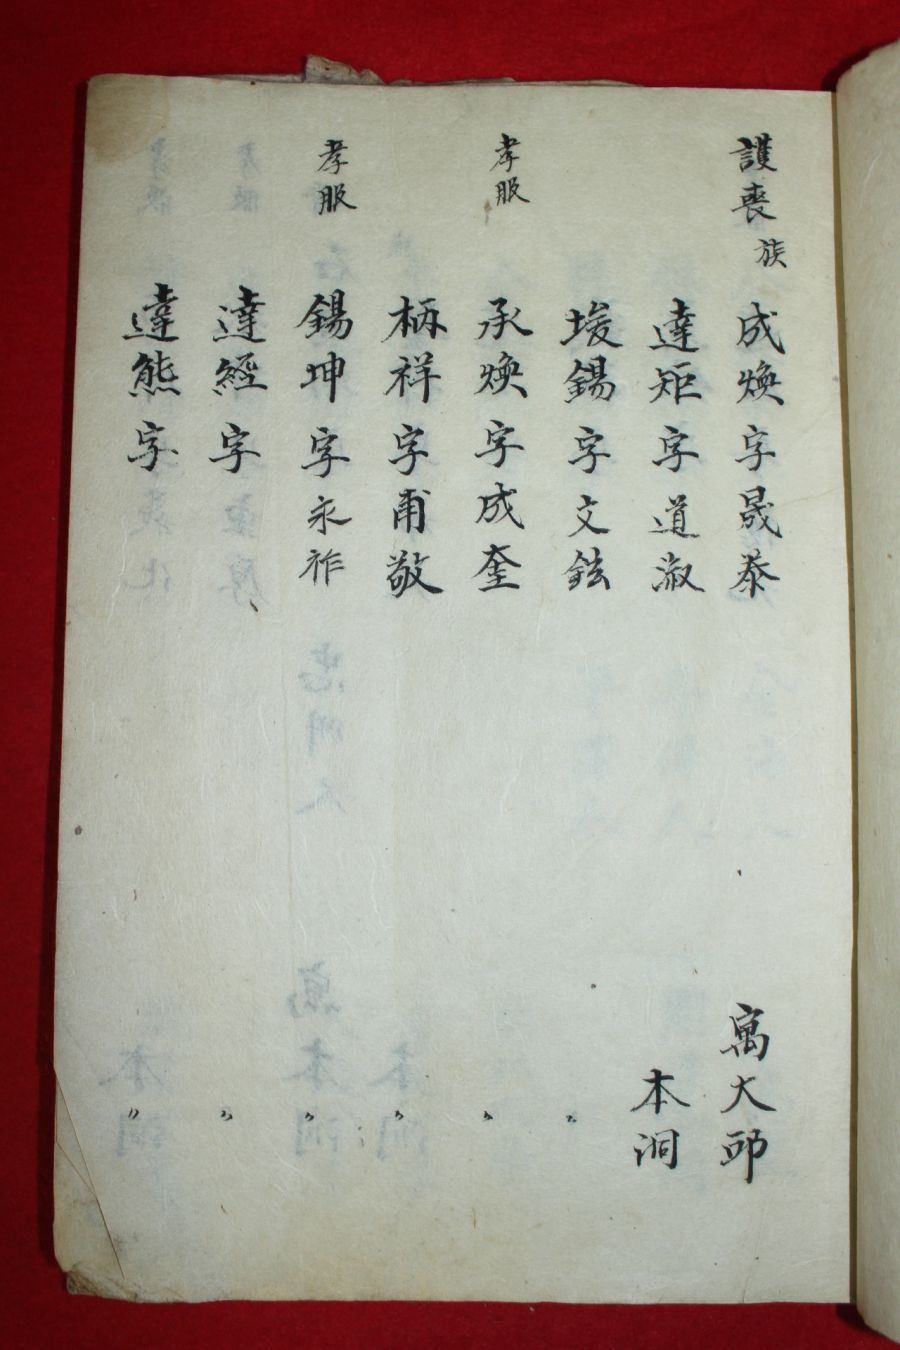 護喪 族 成煥 字 晟泰 寓大邱
達矩 字 道淑 本洞
埈錫 字 文鉉 〃
孝服 承煥 字 成奎 〃
柄祥 字 甫敬 〃
孝服 錫坤 字 永祚 〃
達經 字 〃
達熊 字 〃